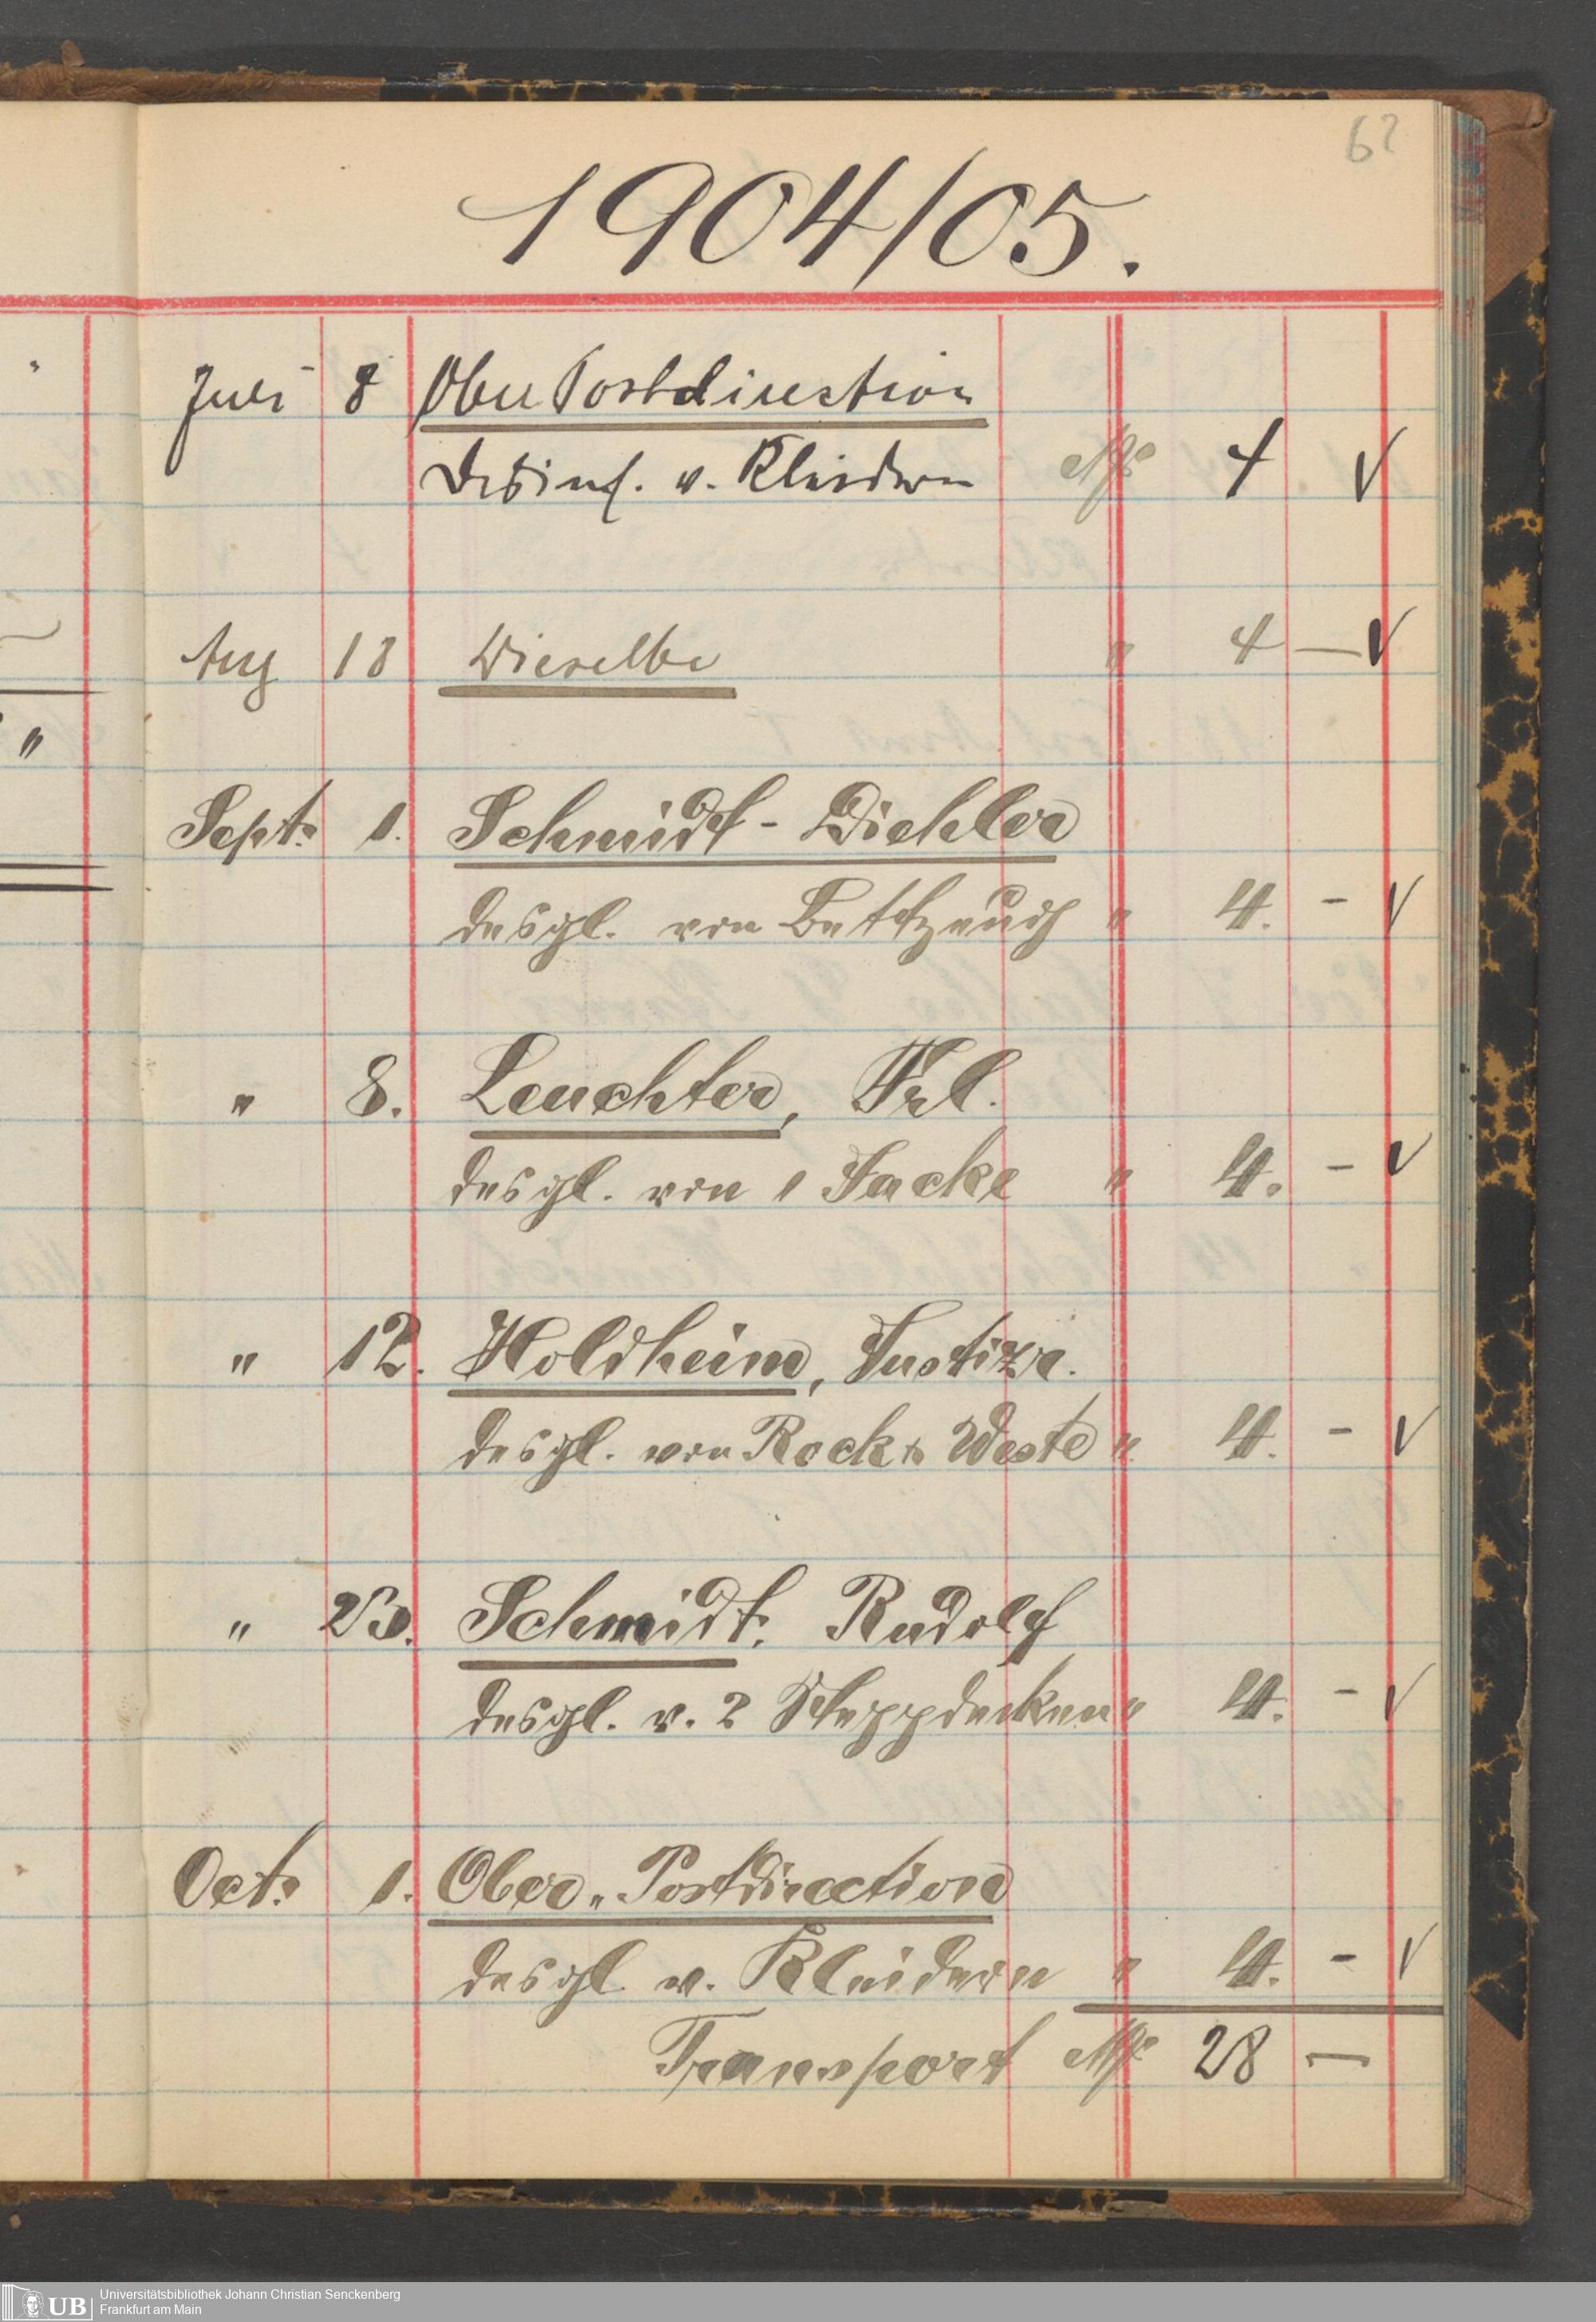 62
1904/05.
Juli 8 Ober Postdirection
Desinf. v. Kleidern M 4 √
Aug 18 Dieselbe " 4 — √
Sept. 1. Schmidt - Diehler
desgl. von Bettzeug " 4. - √
" 8. Leuchter, Frl.
desgl. von 1 Jacke " 4. - √
" 12. Holdheim, Justizr.
desgl. von Rock & Weste " 4. - √
" 23. Schmidt. Rudolf
desgl. v. 2 Steppdecken " 4. - √
Oct. 1. Ober-Postdirection
desgl. v. Kleidern " 4. - √
Transport M 28 —
UB Universitätsbibliothek Johann Christian Senckenberg
Frankfurt am Main